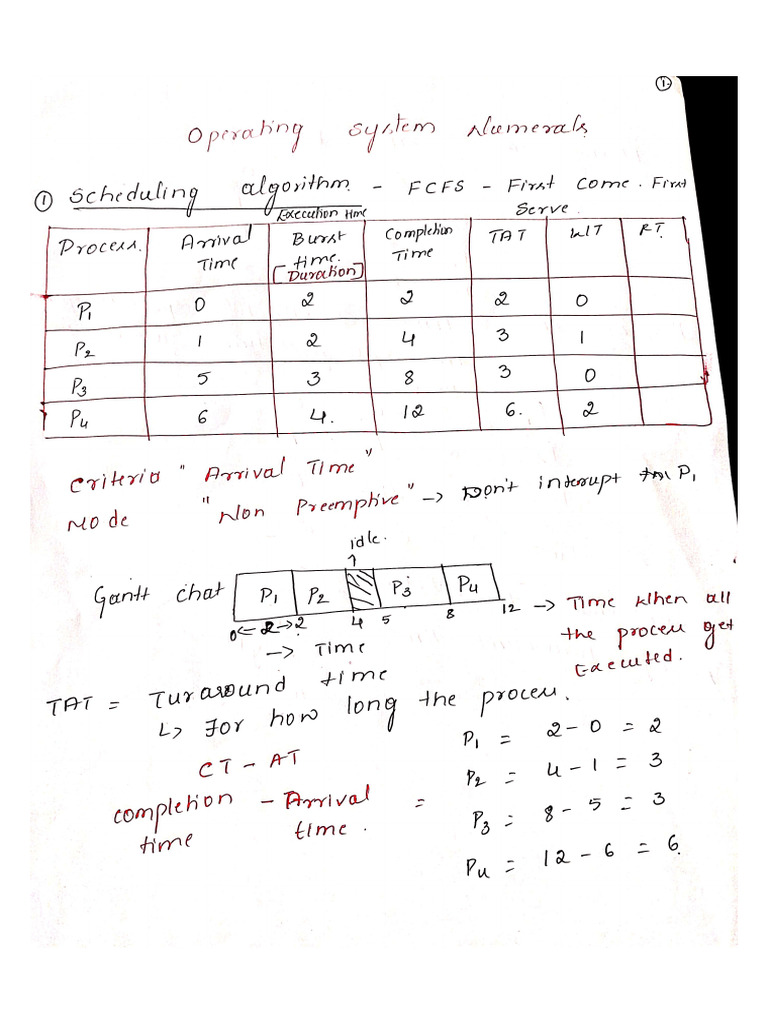 1.
Operating system Numerals
① Scheduling algorithm - FCFS - First Come. First
Serve.
Execution time
Process. Arrival Time Burst time. [Duration] Completion Time TAT WT RT
P1 0 2 2 2 0
P2 1 2 4 3 1
P3 5 3 8 3 0
P4 6 4. 12 6. 2
Criteria "Arrival Time"
Mode "Non Preemptive" -> Don't interrupt P1
idle.
Gantt chat P1 P2 P3 P4
0 <- 2 -> 2 4 5 8 12 -> Time When all
the process get
Executed.
-> Time
TAT = Turaround time
↳ For how long the process.
CT - AT
completion time - Arrival time. =
P1 = 2-0 = 2
P2 = 4-1 = 3
P3 = 8-5 = 3
P4 = 12-6 = 6.